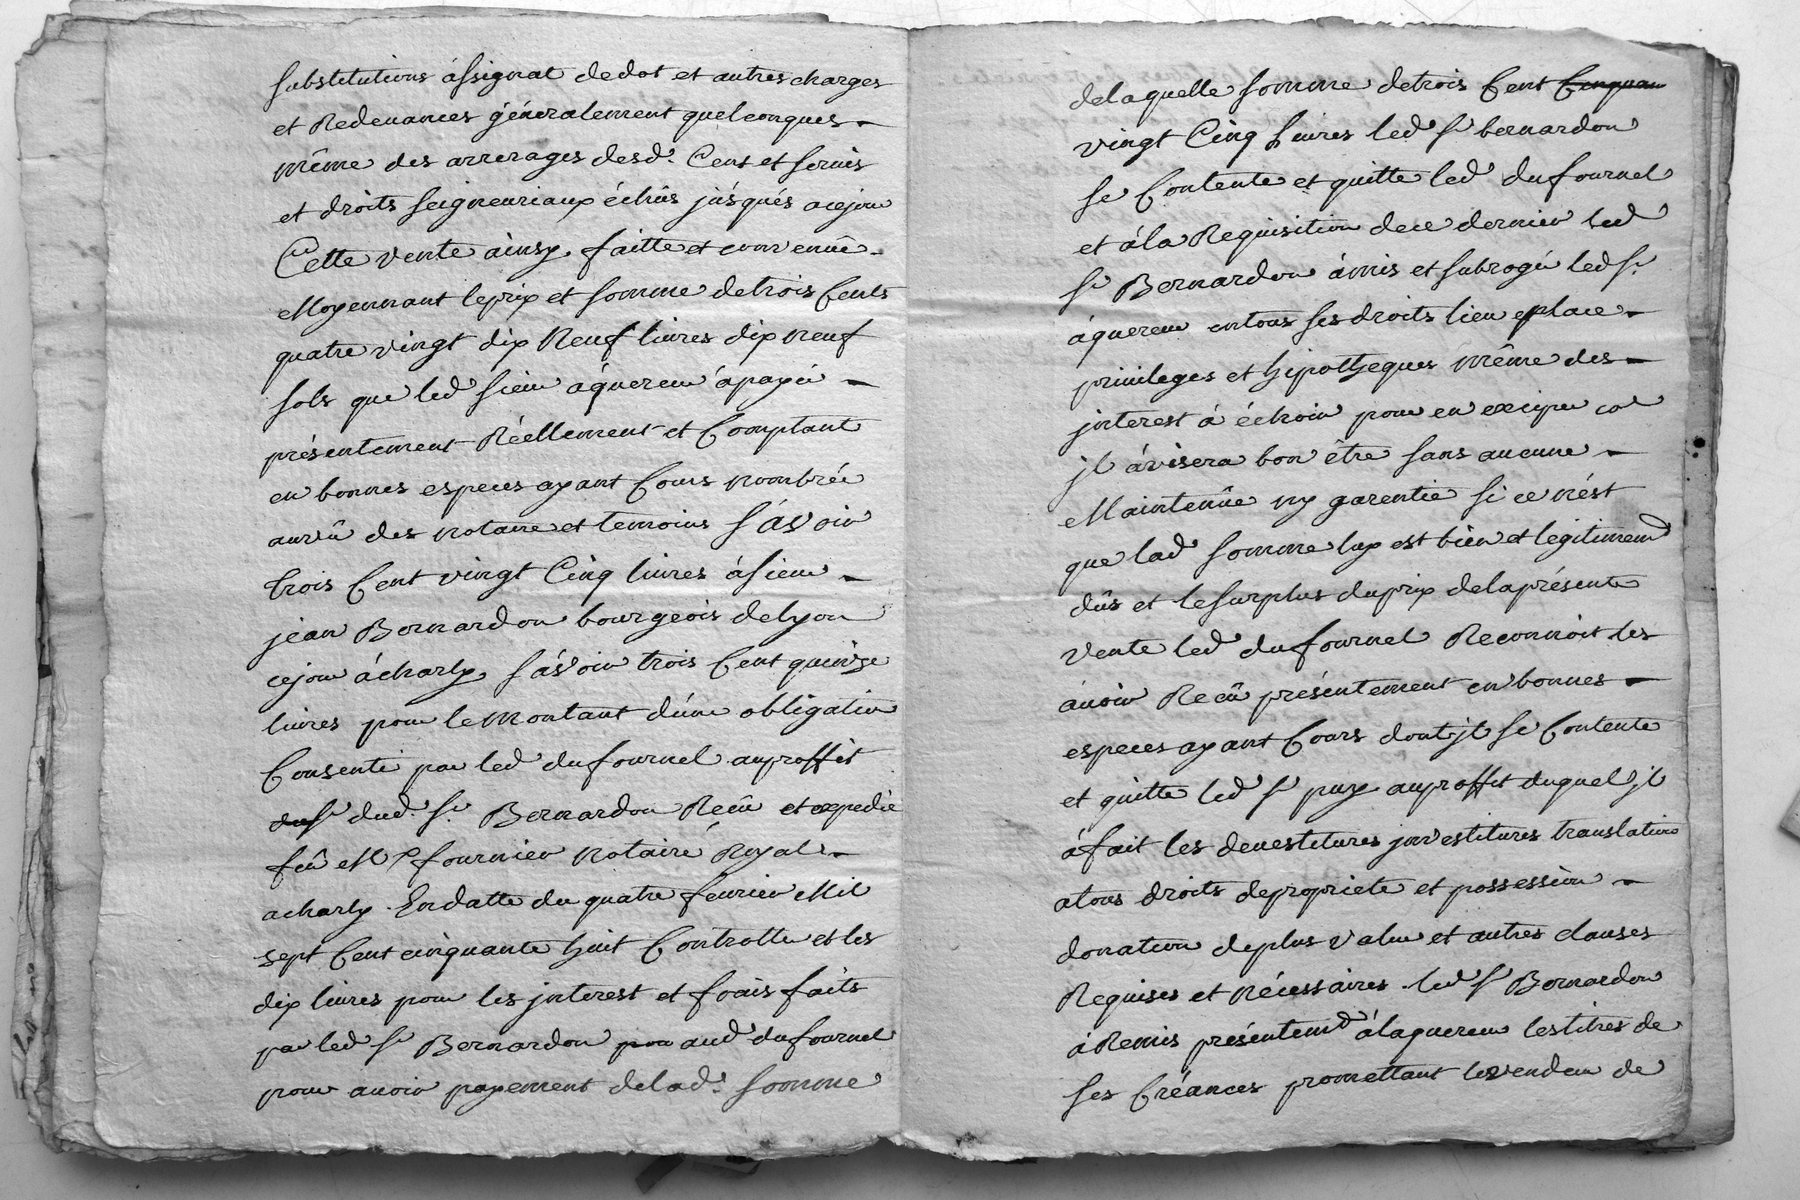 substitutions assignat dedot et autres charges
et Redevances généralement quelconques
même des arrerages desd. Cens et servis
et droits seigneuriaux échûs jusqués acejour
Cette vente ainsy faitte et convenüe
Moyennant leprix et somme detrois Cents
quatre vingt dix Neuf livres dix neuf
sols que led sieur áquereur ápayé
présentement Réellement et Comptant
en bonnes especes ayant Cours nombrée
auvû des notaire et temoins sávoir
trois Cent vingt Cinq livres ásieur
jean Bernardon bourgeois delyon
cejour ácharly sávoir trois Cent quinze
livres pour le Montant dúne obligation
Consenti par led dufournel auproffit
dusr dud. Sr. Bernardon Reçû et expedié
feû Me fournier notaire Royal
acharly Endatte du quatre fevrier Mil
sept Cent cinquante huit Controllé et les
dix livres pour les jnterest et frais faits
par led Sr Bernardon pou aud dufournel
pour avoir payement delad. somme
delaquelle somme detrois Cent Cinquan
vingt Cinq Livres led Sr bernardon
se Contente et quitte led dufournel
et ála Requisition dece dernier led
Sr Bernardon ámis et subrogé led Sr
áquereur entous ses droits lieu eplace
privileges et hipotheques même des
jnterest á échoir pour en exciper co͞e
jl ávisera bon être sans aucune
Maintenüe ny garentie si ce nést
que lad somme luy est bien et legitimemt
dûs et lesurplus duprix delaprésente
vente led dufournel Reconnoit les
ávoir Reçû présentement en bonnes
especes ayant Cours dontjl se Contente
et quitte led Sr puy auproffit duquel jl
áfait les devestitures jnvestitures translation
atous droits depropriete et possession
donation deplus value et autres clauses
Requises et Nécessaires led Sr Bernardon
áRemis présentemt álaquereur lestitres de
ses Créances promettant levendeur de